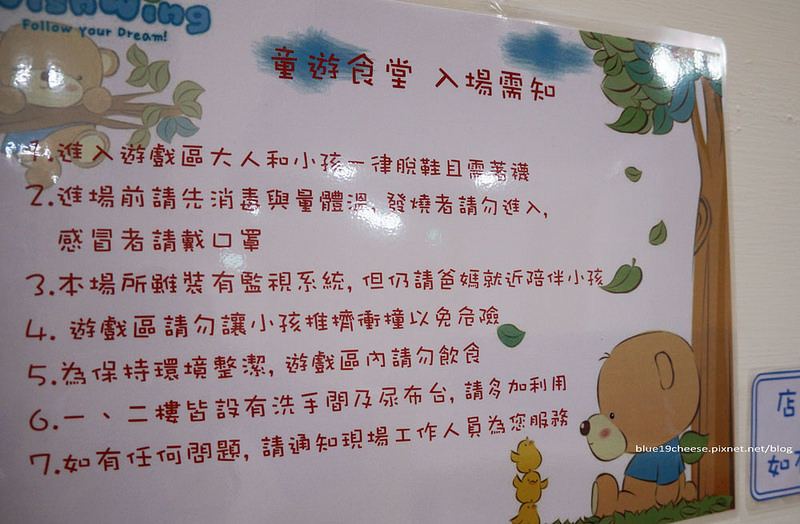 Follow your Dream!
童遊食堂 入場需知
1.進入遊戲區大人和小孩一律脫鞋且需著襪
2.進場前請先消毒與量體溫, 發燒者請勿進入,
感冒者請戴口罩
3.本場所雖裝有監視系統, 但仍請爸媽就近陪伴小孩
4. 遊戲區請勿讓小孩推擠衝撞以免危險
5.為保持環境整潔, 遊戲區內請勿飲食
6.一、二樓皆設有洗手間及尿布台, 請多加利用
7.如有任何問題, 請通知現場工作人員為您服務
blue19cheese.pixnet.net/blog
店
如